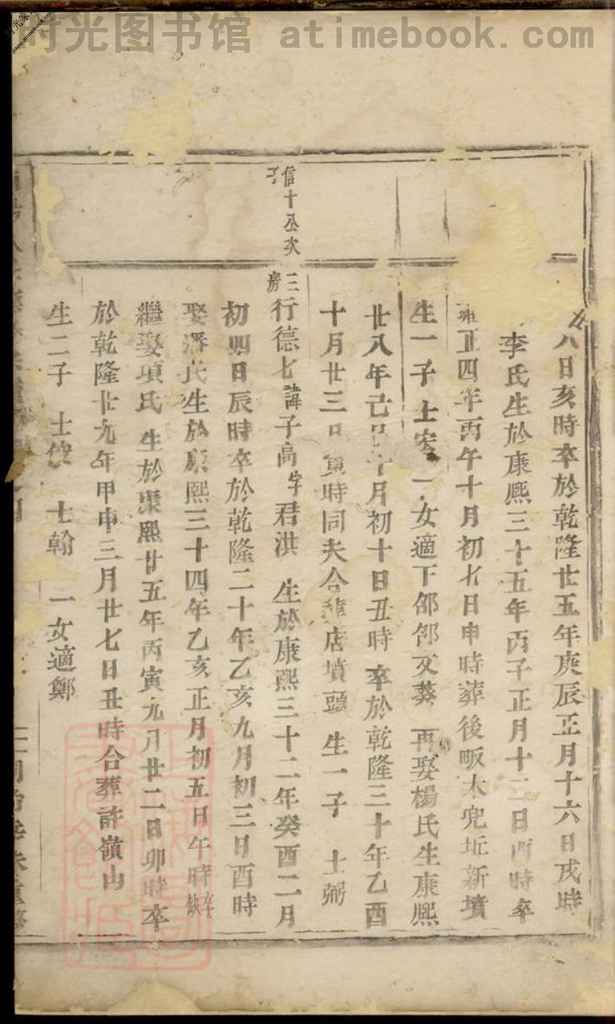 时光图书馆 atimebook.com
八日亥時卒於乾隆廿五年庚辰正月十六日戌時
李氏生於康熙三十五年丙子正月十二日酉時卒
雍正四年丙午十月初七日申時葬後畈木兜坵新墳
生一子士宏 一女適下邵邵文葵 再娶楊氏生康熙
廿八年己巳十月初十日丑時卒於乾隆三十年乙酉
十月廿三日寅時同夫合葬店墳頭 生一子 士弼
信十公次子
三房行德七諱子高字君淇 生於康熙三十二年癸酉二月
初四日辰時卒於乾隆二十年乙亥九月初三日酉時
娶潘氏生於康熙三十四年乙亥正月初五日午時卒缺
繼娶項氏 生於康熙廿五年丙寅九月廿二日卯時卒
於乾隆廿九年甲申三月廿七日丑時合葬許嶺山
生二子 士俊 士翰 一女適鄭